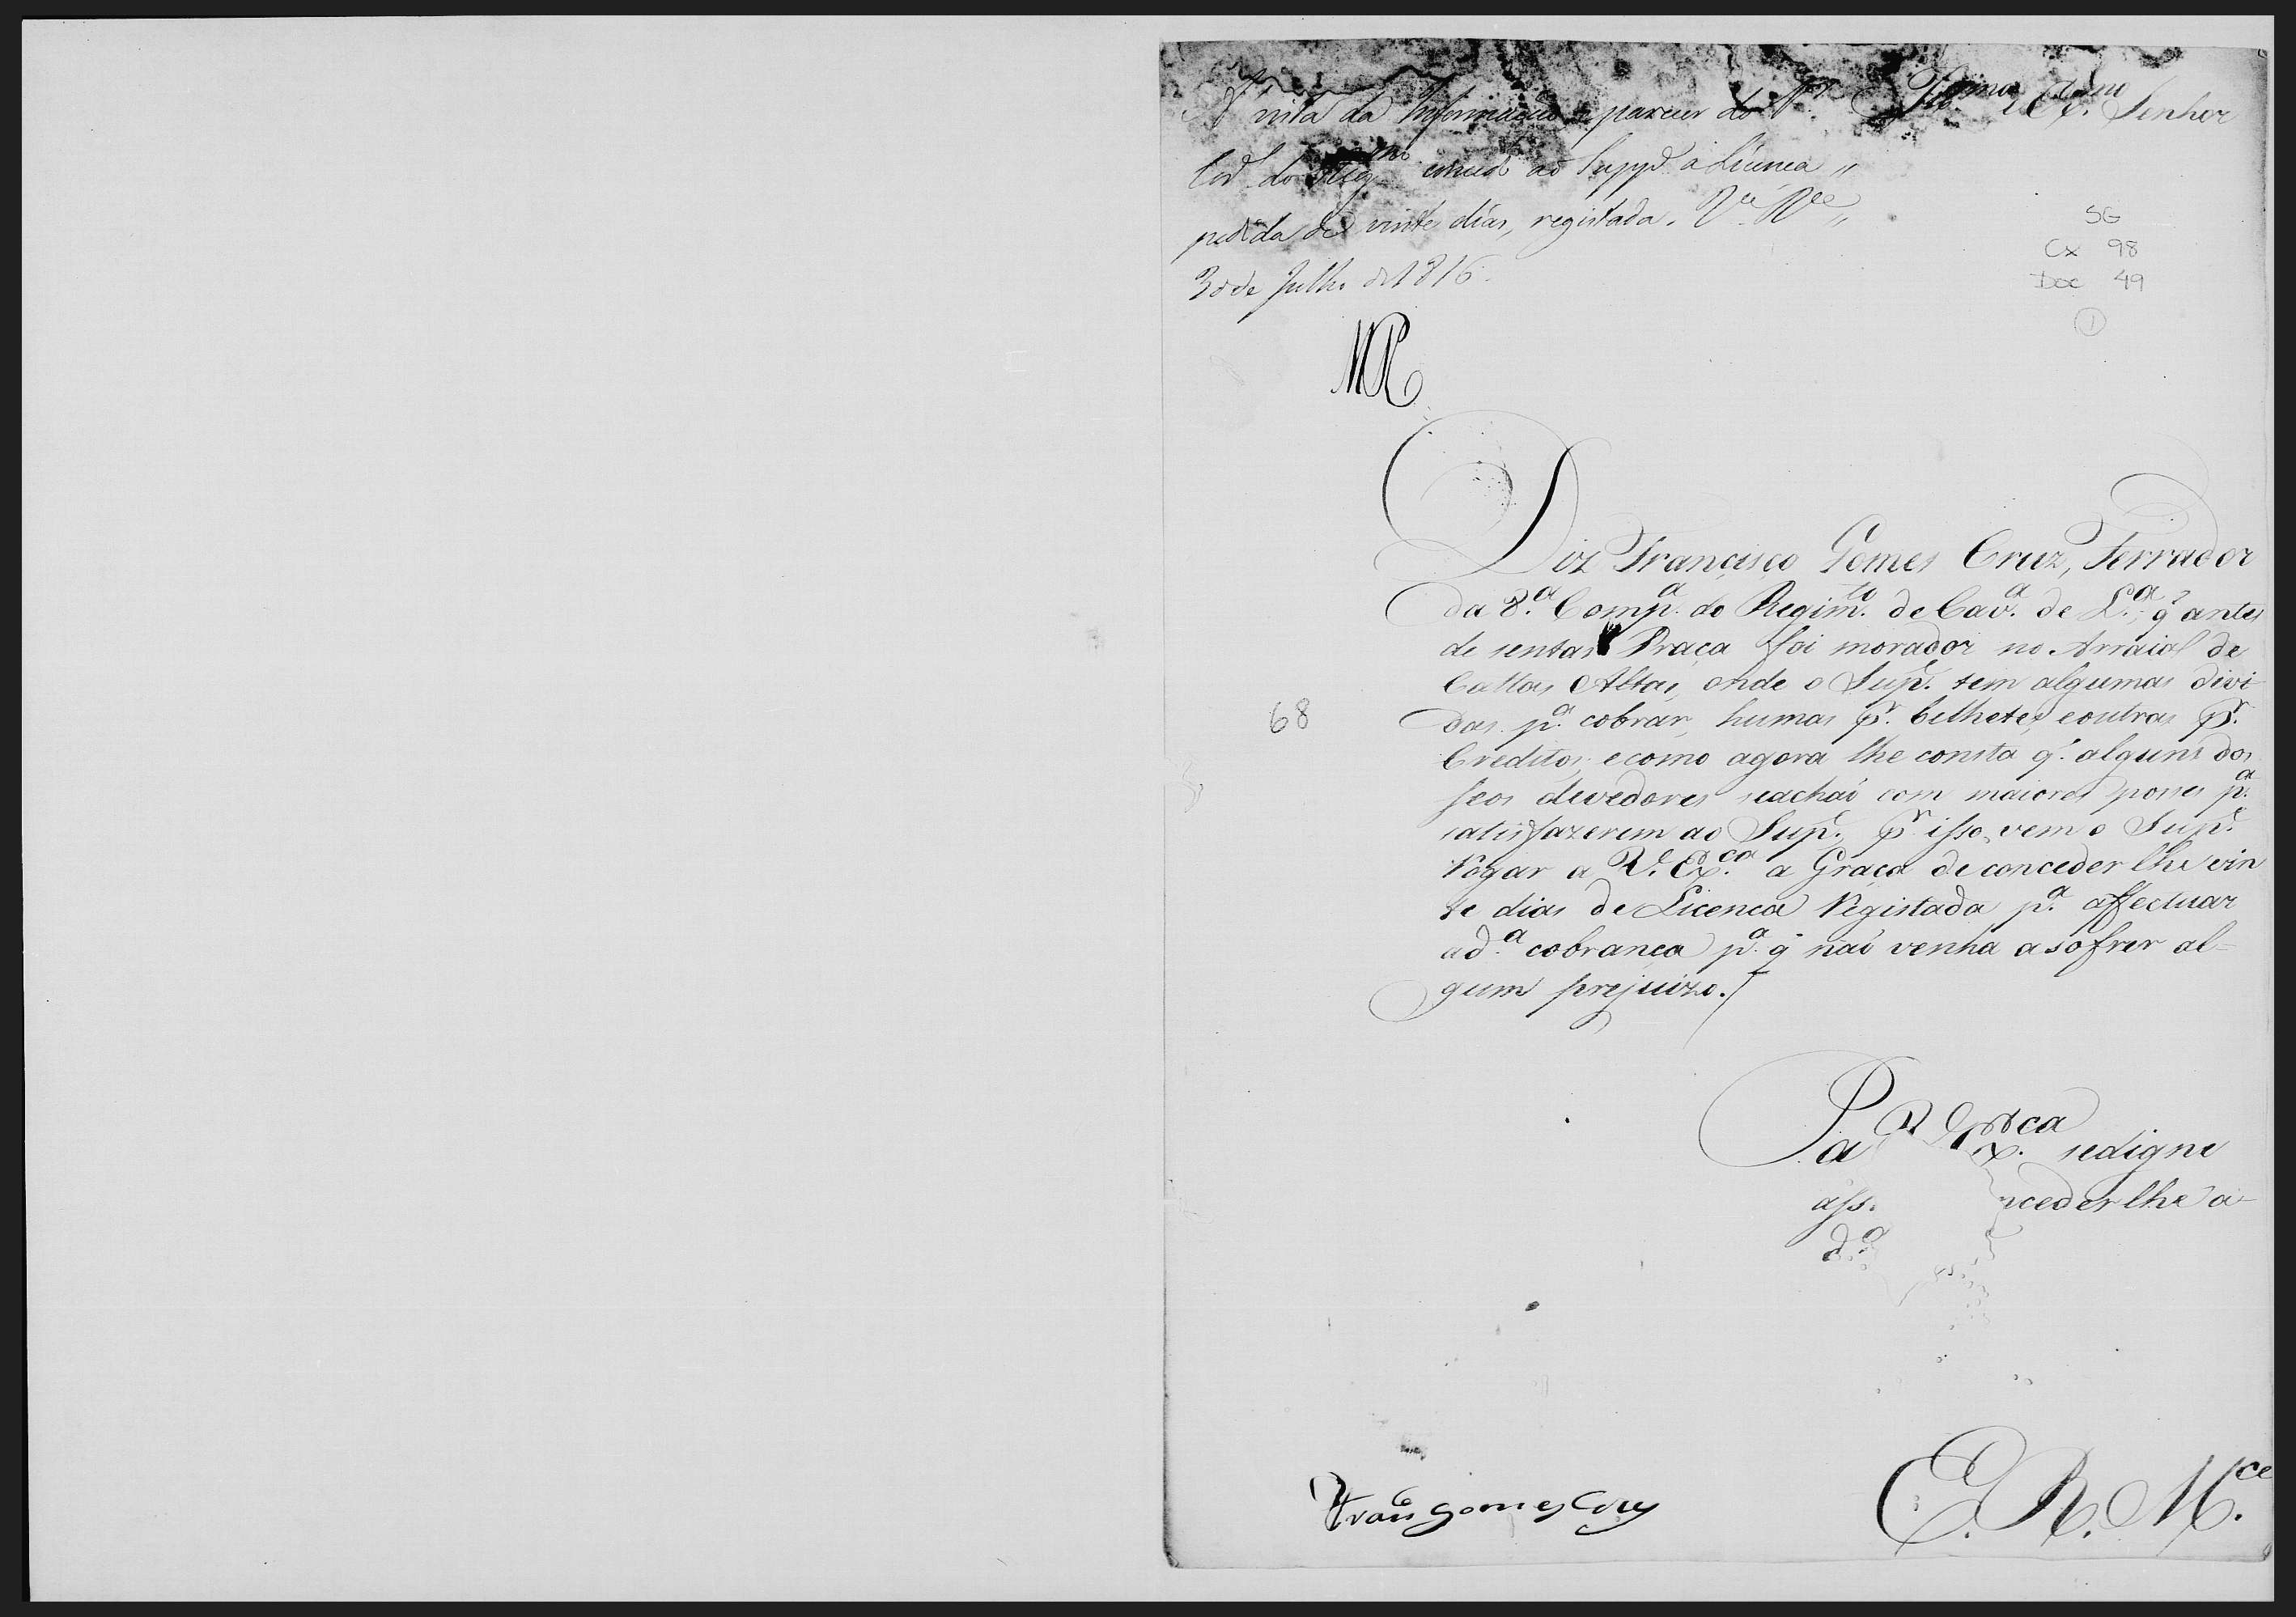 A' vista da Informação e parecer do
Illmo. e Exmo. Senhor
Cod. do Regimto concedo ao Suppe. a Licença
pedida de vinte dias, registada. Va. Rca
30 de Julho de 1816.
MP
SG
Cx 98
Doc 49
1
Diz Francisco Gomes Cruz, Ferrador
da 8.a Comp.a do Regim.to de Cav.a de L.a, q' antes
de sentar Praça foi morador no Arraial de
Cattas Altas, onde o Sup.e tem algumas divi-
das p.a cobrar, humas p.r bilhetes, e outras p.r
Creditos; e como agora lhe consta q' alguns dos
seos devedores se achaõ com maiores posses p.a
satisfazerem ao Sup.e p.r isso vem o Sup.e
Rogar a V. Ex.ca a Graça de conceder lhe vin
te dias de Licença Registada p.a affectuar
a d.a cobrança p.a q' naõ venha a sofrer al=
gum prejuizo.
68
P.a V. Ex.ca se digne
ass. nceder lhe a
d.a
Fran.co Gomes Cruz
E. R. M.ce